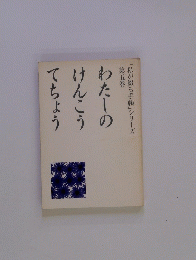 シリーズ
第五巻
わたしの
けんこう
てちょう